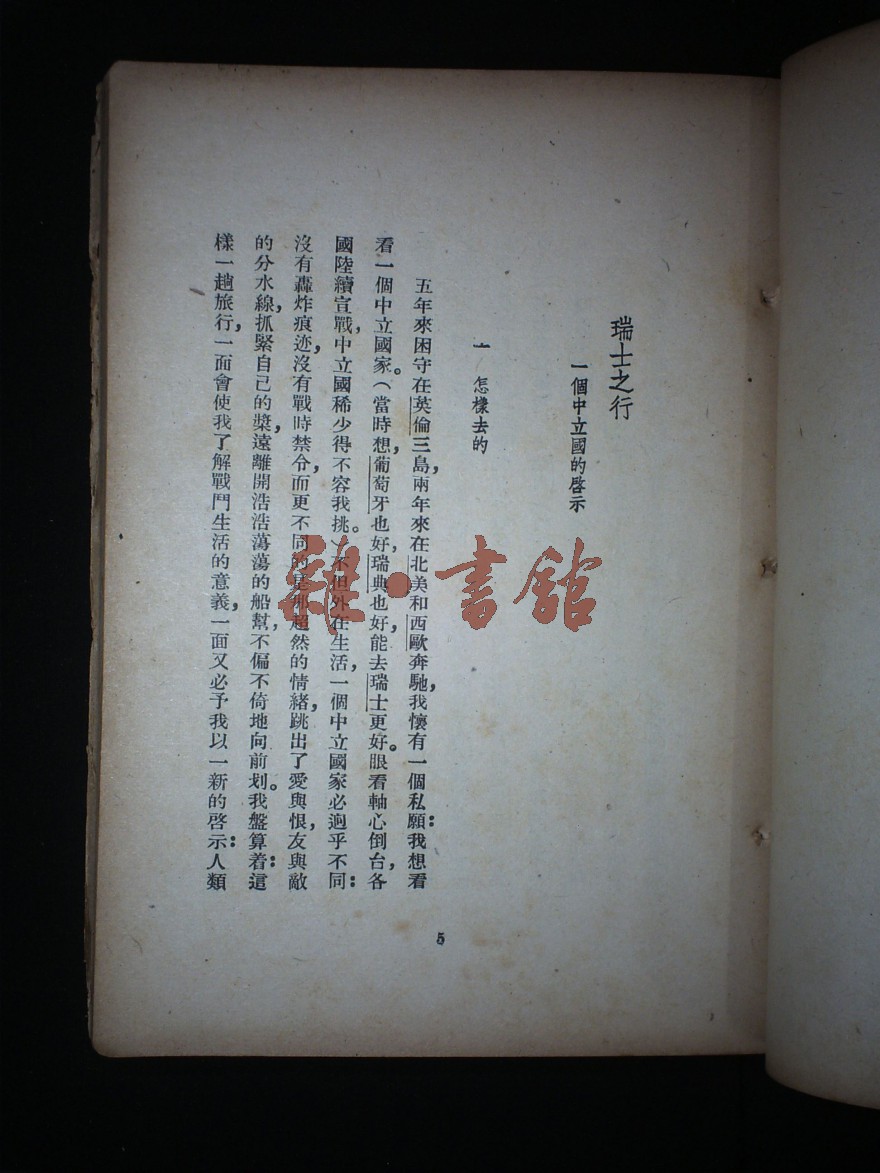 瑞士之行
一個中立國的啓示
一 怎樣去的
五年來困守在英倫三島，兩年來在北美和西歐奔馳，我懷有一個私願：我想看
看一個中立國家。（當時想，葡萄牙也好，瑞典也好，能去瑞士更好。眼看軸心倒台，各
國陸續宣戰，中立國稀少得不容我挑。）不但外在生活，一個中立國家必逈乎不同：
沒有轟炸痕迹，沒有戰時禁令，而更不同的是那超然的情緒，跳出了愛與恨，友與敵
的分水線，抓緊自己的槳，遠離開浩浩蕩蕩的船幫，不偏不倚地向前划。我盤算着：這
樣一趟旅行，一面會使我了解戰鬥生活的意義，一面又必予我以一新的啓示：人類
5
雜·書館